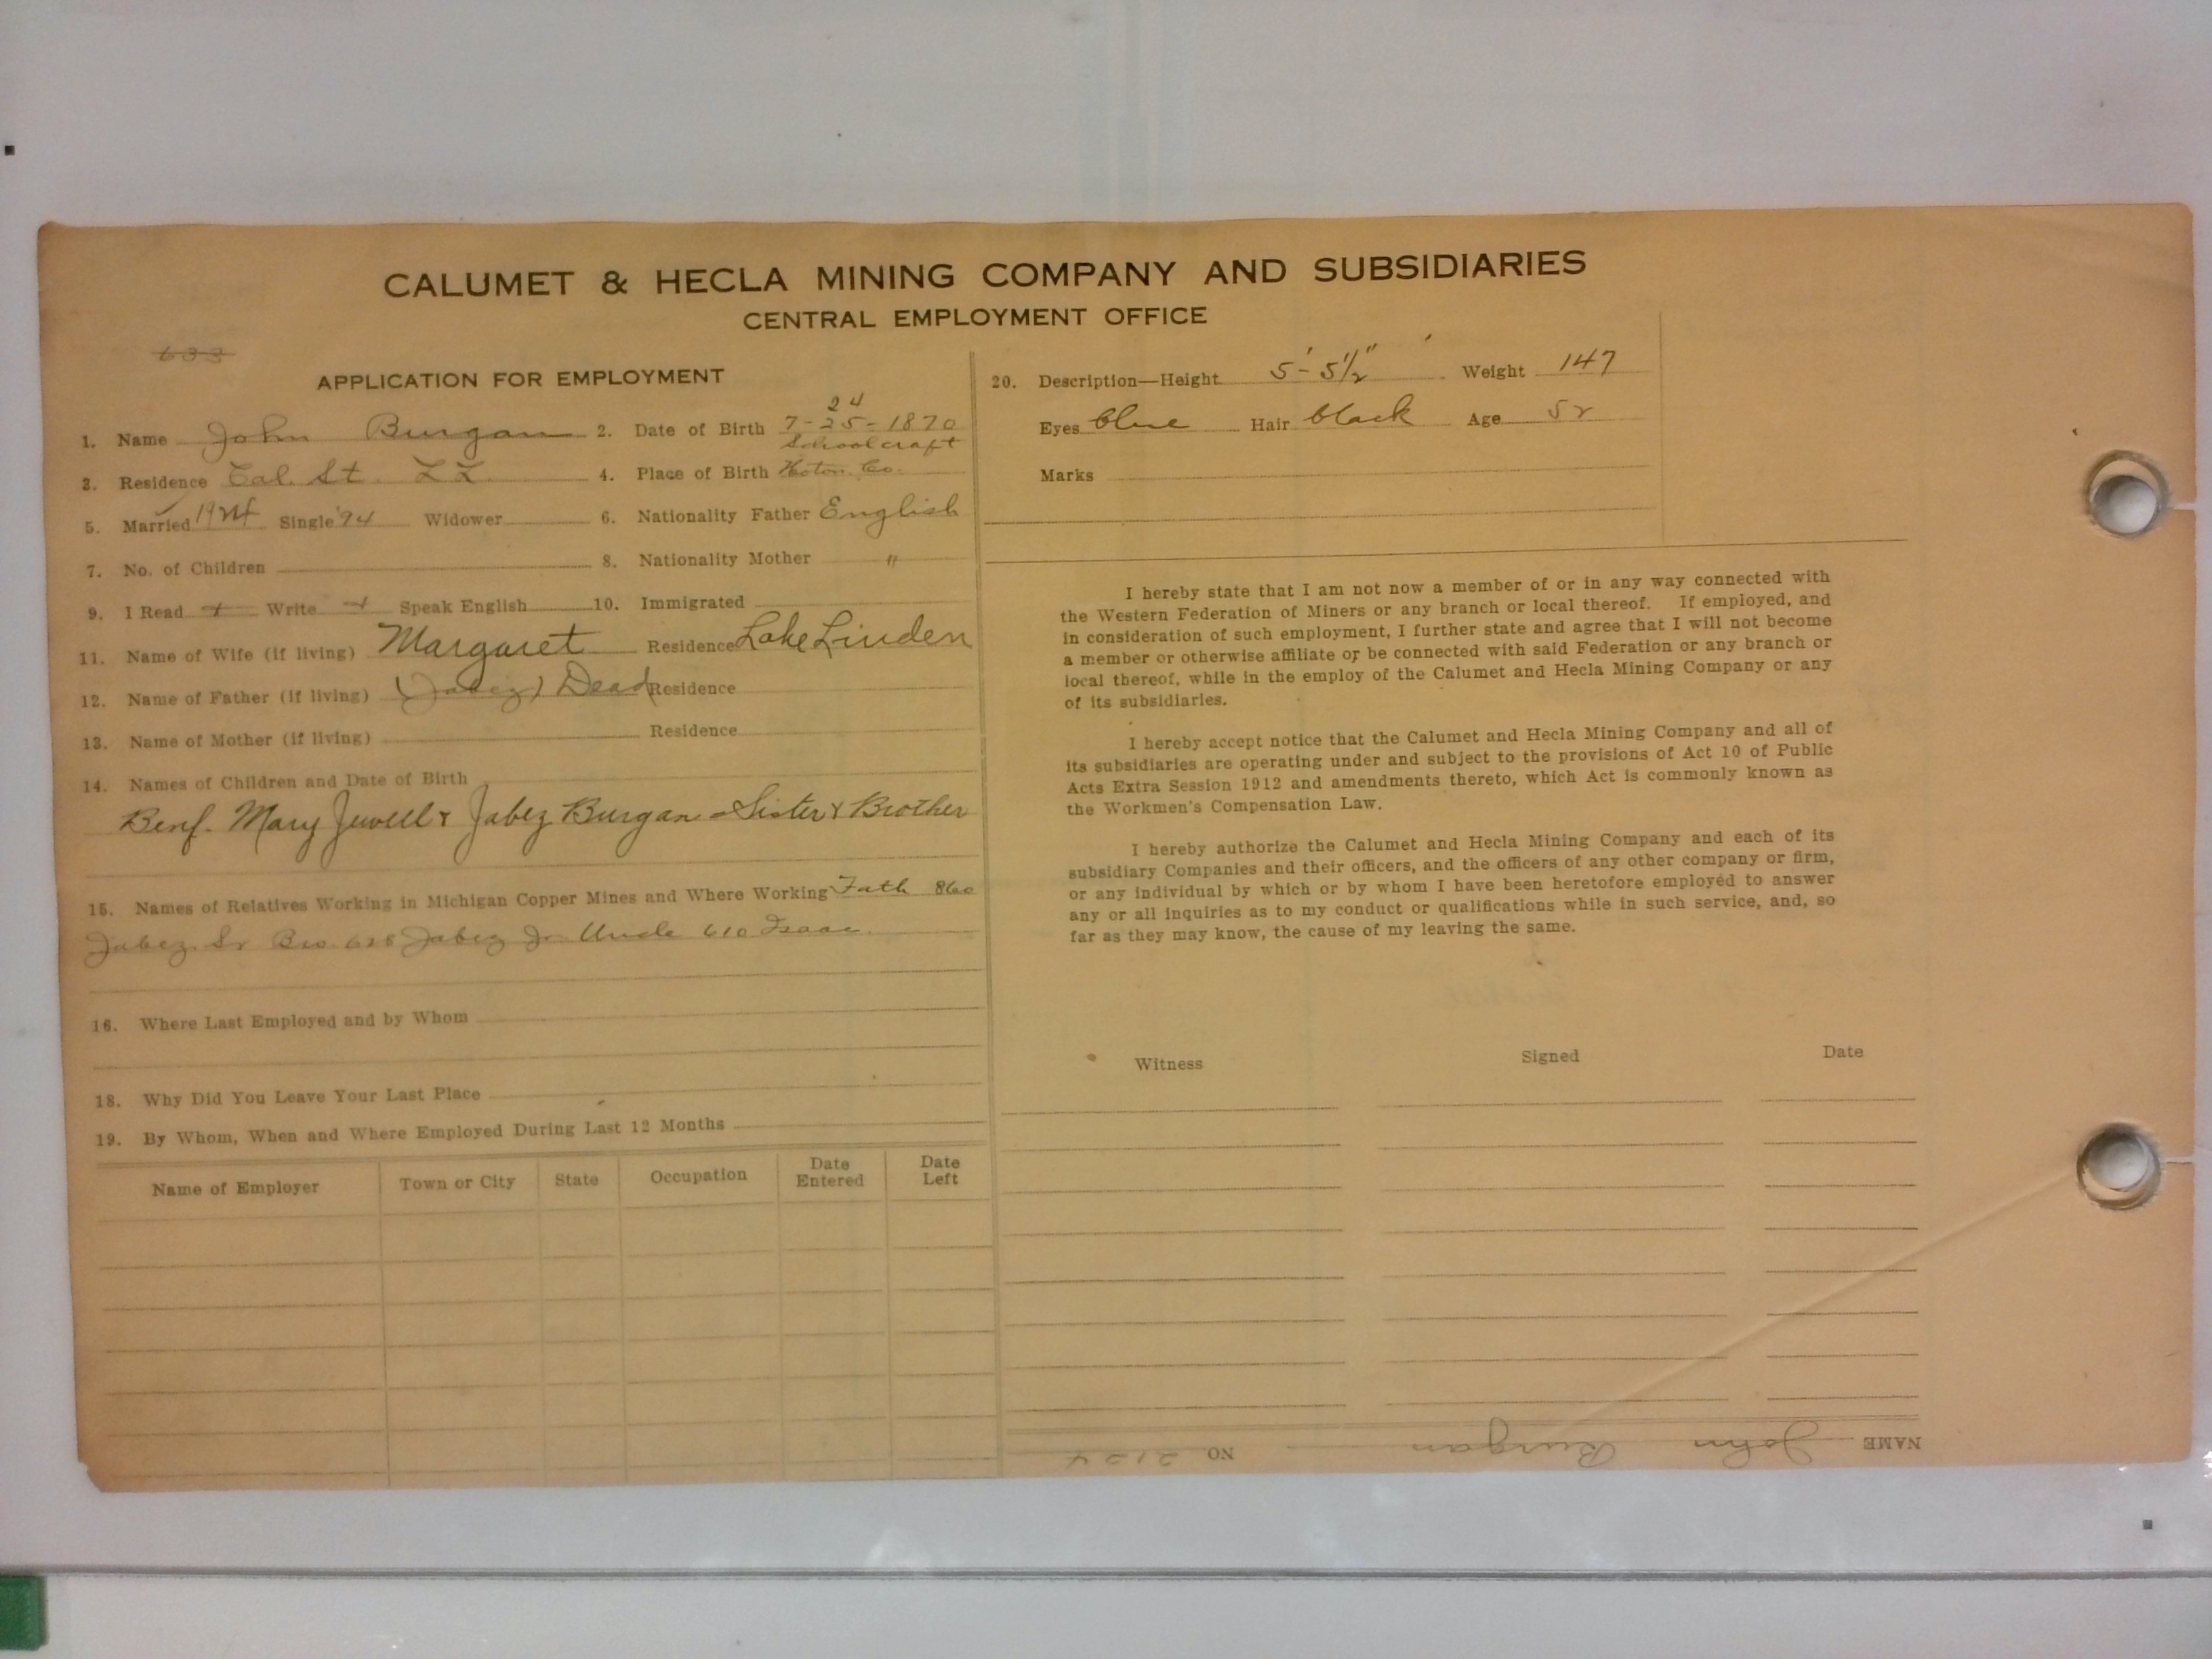 CALUMET & HECLA MINING COMPANY AND SUBSIDIARIES
CENTRAL EMPLOYMENT OFFICE
633
APPLICATION FOR EMPLOYMENT
1. Name John Burgan 2. Date of Birth 7-25-1870
24
3. Residence Cal. St. LL 4. Place of Birth Schoolcraft Hoton. Co.
5. Married 1924 Single '24 Widower 6. Nationality Father English
7. No. of Children 8. Nationality Mother "
9. I Read + Write + Speak English 10. Immigrated
11. Name of Wife (if living) Margaret Residence Lake Linden
12. Name of Father (if living) (Jabez) Dead Residence
13. Name of Mother (if living) Residence
14. Names of Children and Date of Birth
Benf. Mary Jewell & Jabez Burgan - Sister & Brother
15. Names of Relatives Working in Michigan Copper Mines and Where Working Fath 860
Jabez Sr Bro 628 Jabez Jr Uncle 610 Isaac.
16. Where Last Employed and by Whom
18. Why Did You Leave Your Last Place
19. By Whom, When and Where Employed During Last 12 Months
Name of Employer Town or City State Occupation Date Entered Date Left
20. Description—Height 5'-5 1/2" Weight 147
Eyes blue Hair black Age 52
Marks
I hereby state that I am not now a member of or in any way connected with
the Western Federation of Miners or any branch or local thereof. If employed, and
in consideration of such employment, I further state and agree that I will not become
a member or otherwise affiliate or be connected with said Federation or any branch or
local thereof, while in the employ of the Calumet and Hecla Mining Company or any
of its subsidiaries.
I hereby accept notice that the Calumet and Hecla Mining Company and all of
its subsidiaries are operating under and subject to the provisions of Act 10 of Public
Acts Extra Session 1912 and amendments thereto, which Act is commonly known as
the Workmen's Compensation Law.
I hereby authorize the Calumet and Hecla Mining Company and each of its
subsidiary Companies and their officers, and the officers of any other company or firm,
or any individual by which or by whom I have been heretofore employed to answer
any or all inquiries as to my conduct or qualifications while in such service, and, so
far as they may know, the cause of my leaving the same.
Witness Signed Date
NAME John Burgan NO 2124